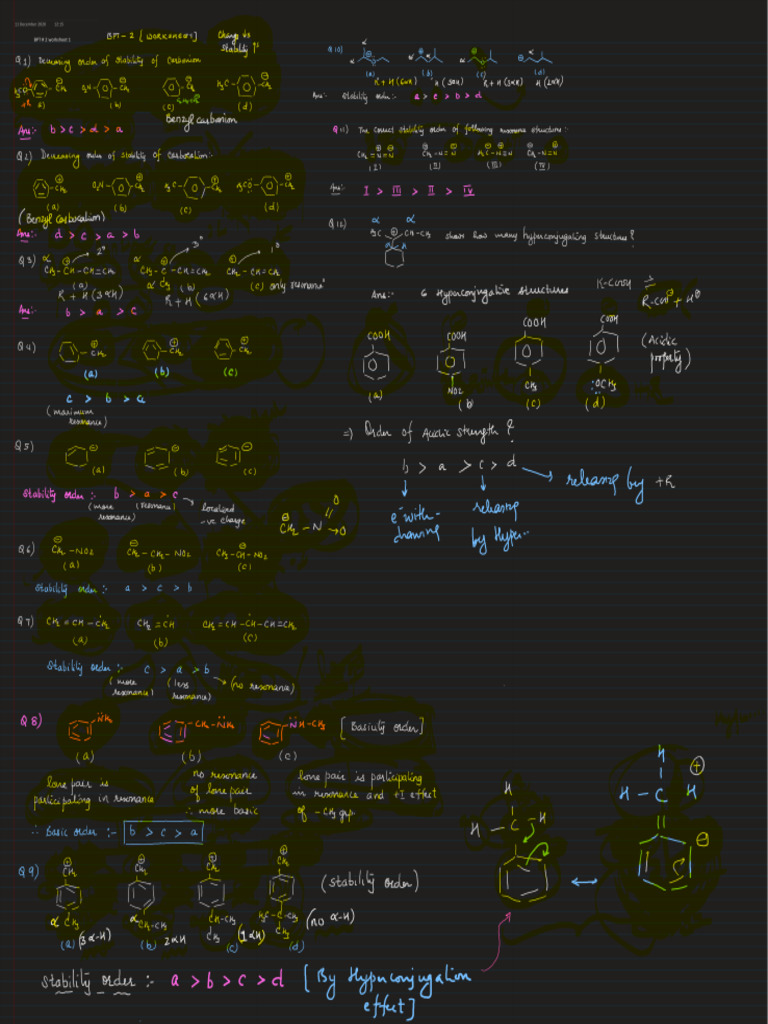 11 December 2020 12:13
BPTH 2 worksheet 1
BPT-2 [WORKSHEET]
Change ↓s
stability ↑s
Q1) Decreasing order of stability of Carbanion
(b)
(c)
(d)
Benzyl carbanion
Ans:- b > c > d > a
Q2) Decreasing order of stability of carbocation:-
(a) (b) (c) (d)
(Benzyl Carbocation)
Ans:- d > c > a > b
Q3)
2° 3° 1°
CH₃-CH-CH=CH₂ CH₃-C-CH=CH₂ CH₂-CH=CH₂
(a) (b) (c) only resonance
R + H (3αH) R + H (6αH)
Ans:- b > a > c
Q4)
(a) (b) (c)
c > b > a
(maximum
resonance)
Q5)
(a) (b) (c)
Stability order:- b > a > c
(more
resonance)
(resonance)
Localized
-ve charge
CH₂ - N O
→O
Q6) CH₂-NO2 CH₂-CH₂-NO2 CH₃-CH-NO2
(a) (b) (c)
Stability order:- a > c > b
Q7) CH₂=CH-CH₂ CH₂=CH CH₂=CH-CH-CH=CH₂
(a) (b) (c)
Stability order:- c > a > b
(more
resonance)
(less
resonance)
(no resonance)
Q8) NH₂ CH₂-NH₂ NH-CH₃ [Basicity order]
(a) (b) (c)
lone pair is
participating in resonance
no resonance
of lone pair
∴ more basic
lone pair is participating
in resonance and +I effect
of -CH₃ grp.
∴ Basic order:- b > c > a
Q9)
(stability order)
(a) (3α-H) (b) 2αH (c) (1αH) (d) (no α-H)
Stability order:- a > b > c > d [By Hyperconjugation
effect]
Q10)
(a) (b) (c) (d)
Ans:- Stability order:- a > c > b > d
Q11) The correct stability order of following resonance structure:-
(I) (II) (III) (IV)
Ans:- I > III > II > IV
Q12) H₃C CH-CH₃ show how many hyperconjugating structures?
Ans:- 6 Hyperconjugative structures
R-COOH ⇌
R-COO⊖ + H⊕
COOH COOH COOH COOH
NO2 CH₃ :OCH₃
(a) (b) (c) (d)
(Acidic
property)
⇒ Order of Acidic strength?
b > a > c > d
e⁻ with-
drawing
releasing
by Hyper-
releasing by +R
H
H - C - H
H
H - C H
⊕
⊖